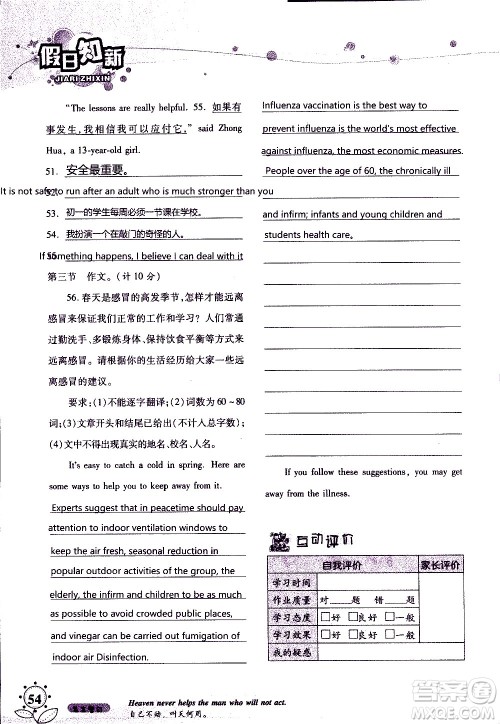 假日知新
JIARI ZHIXIN
"The lessons are really helpful. 55. 如果有
事发生，我相信我可以应付它，" said Zhong
Hua, a 13-year-old girl.
51. 安全最重要。
52.
It is not safe to run after an adult who is much stronger than you
53. 初一的学生每周必须一节课在学校。
54. 我扮演一个在敲门的奇怪的人。
55.
If something happens, I believe I can deal with it
第三节　作文。（计 10 分）
56. 春天是感冒的高发季节，怎样才能远离
感冒来保证我们正常的工作和学习？人们常常通
过勤洗手、多锻炼身体、保持饮食平衡等方式来
远离感冒。请根据你的生活经历给大家提一些远
离感冒的建议。
要求：(1)不能逐字翻译；(2)词数为 60～80
词；(3)文章开头和结尾已给出(不计入总字数)；
(4)文中不得出现真实的地名、校名、人名。
It's easy to catch a cold in spring. Here are
some ways to help you to keep away from it.
Experts suggest that in peacetime should pay
attention to indoor ventilation windows to
keep the air fresh, seasonal reduction in
outdoor activities of the group, the
elderly, the infirm and children to
avoid crowded public places,
and vaccination can be carried out fumigation of
indoor air Disinfection.
Influenza vaccination is the best way to
prevent influenza is the world's most effective
against influenza, the most economic measures.
People over the age of 60, the chronically ill
and infirm; infants and young children and
students should be vaccinated.
If you follow these suggestions, you may get
away from the illness.
互动评价
自我评价 家长评价
学习时间
作业质量 对　题 错　题
学习态度 □好 □良好 □一般
学习效果 □好 □良好 □一般
我的疑惑
54
Heaven never helps the man who will not act.
自己不动，叫天何用。